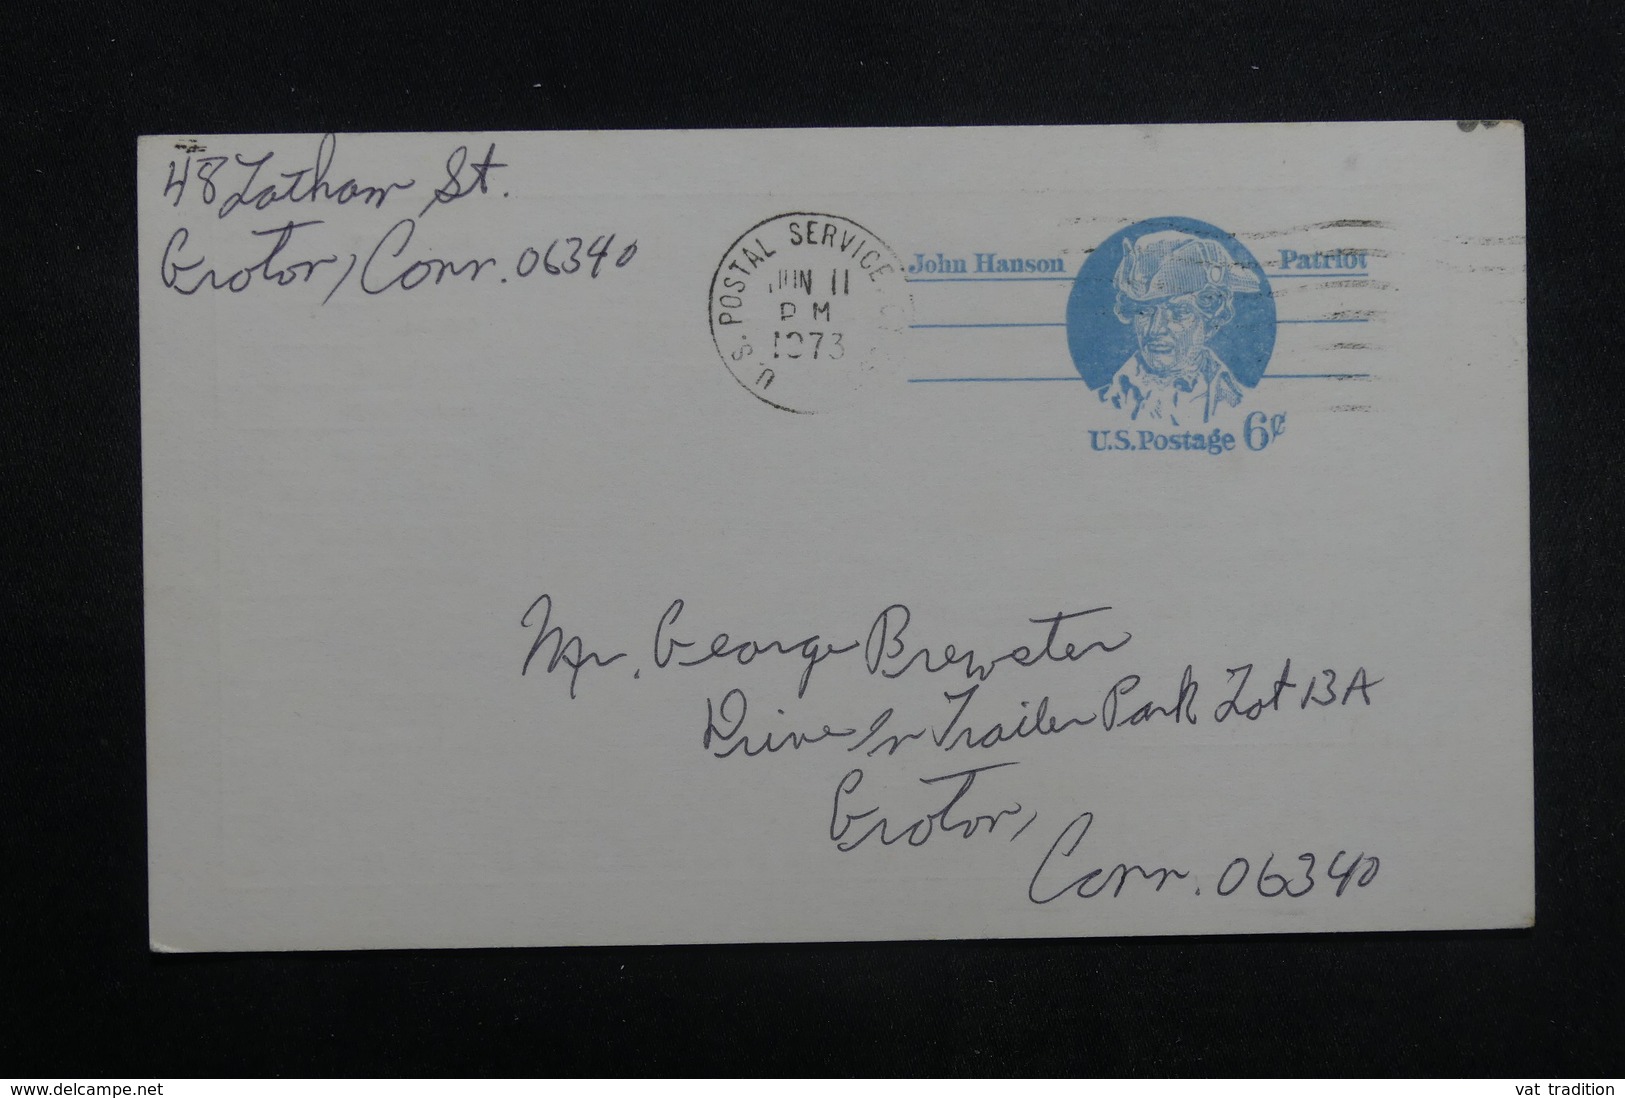 48 Latham St.
Groton, Conn. 06340
U.S. POSTAL SERVICE CT
JUN 11
PM
1973
John Hanson Patriot
U.S. Postage 6¢
Mr. George Brewster
Drive In Trailer Park Lot 13A
Groton,
Conn. 06340
www.delcampe.net
vat tradition